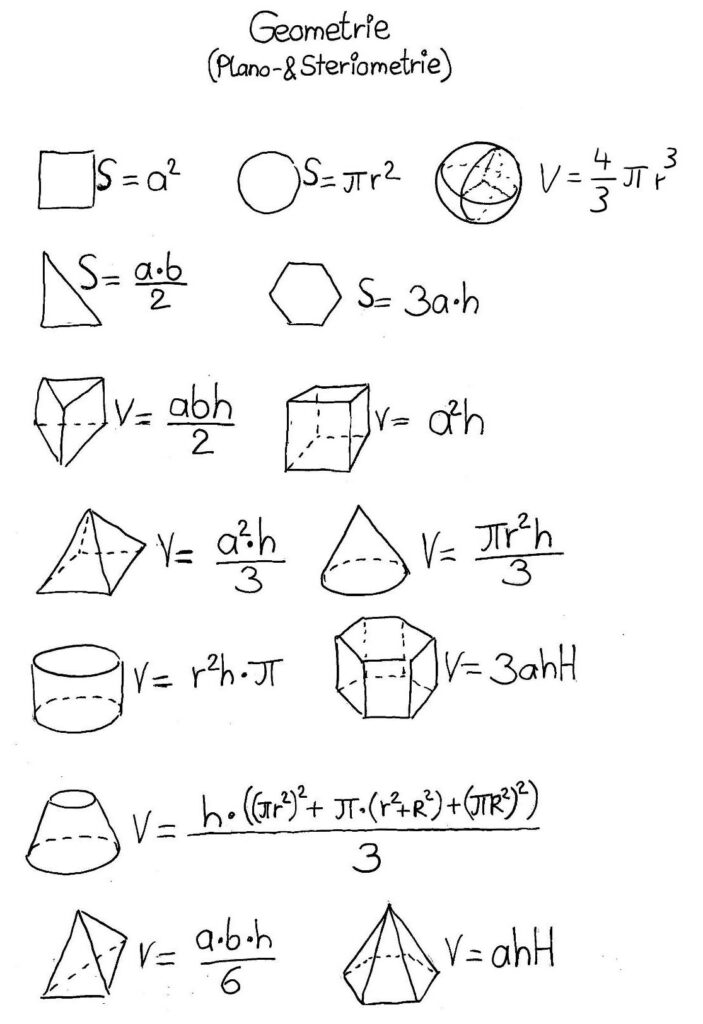 Geometrie
(Plano-&Steriometrie)
S = a²
S = πr²
V = 4/3 π r³
S = a·b/2
S = 3a·h
V = abh/2
V = a²h
V = a²·h/3
V = πr²h/3
V = r²h·π
V = 3ahH
V = h·((πr²)²+ π·(r²+R²)+(πR²)²)/3
V = a·b·h/6
V = ahH